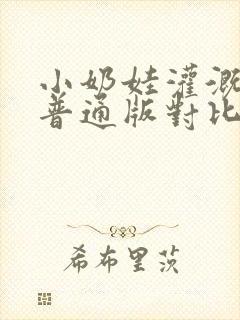 小奶娃灌溉
普通版對比
希布里茨